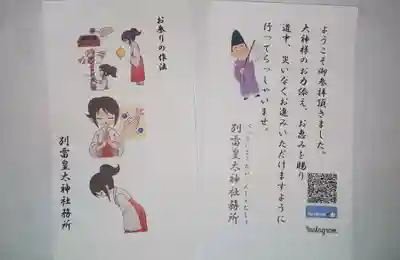 ようこそ御参拝頂きました。
大神様のお力添え、お恵みを賜り
道中、災いなくお進みいただけますように
行ってらっしゃいませ。
別雷皇太神社務所
facebook
Instagram
お参りの作法
別雷皇太神社務所